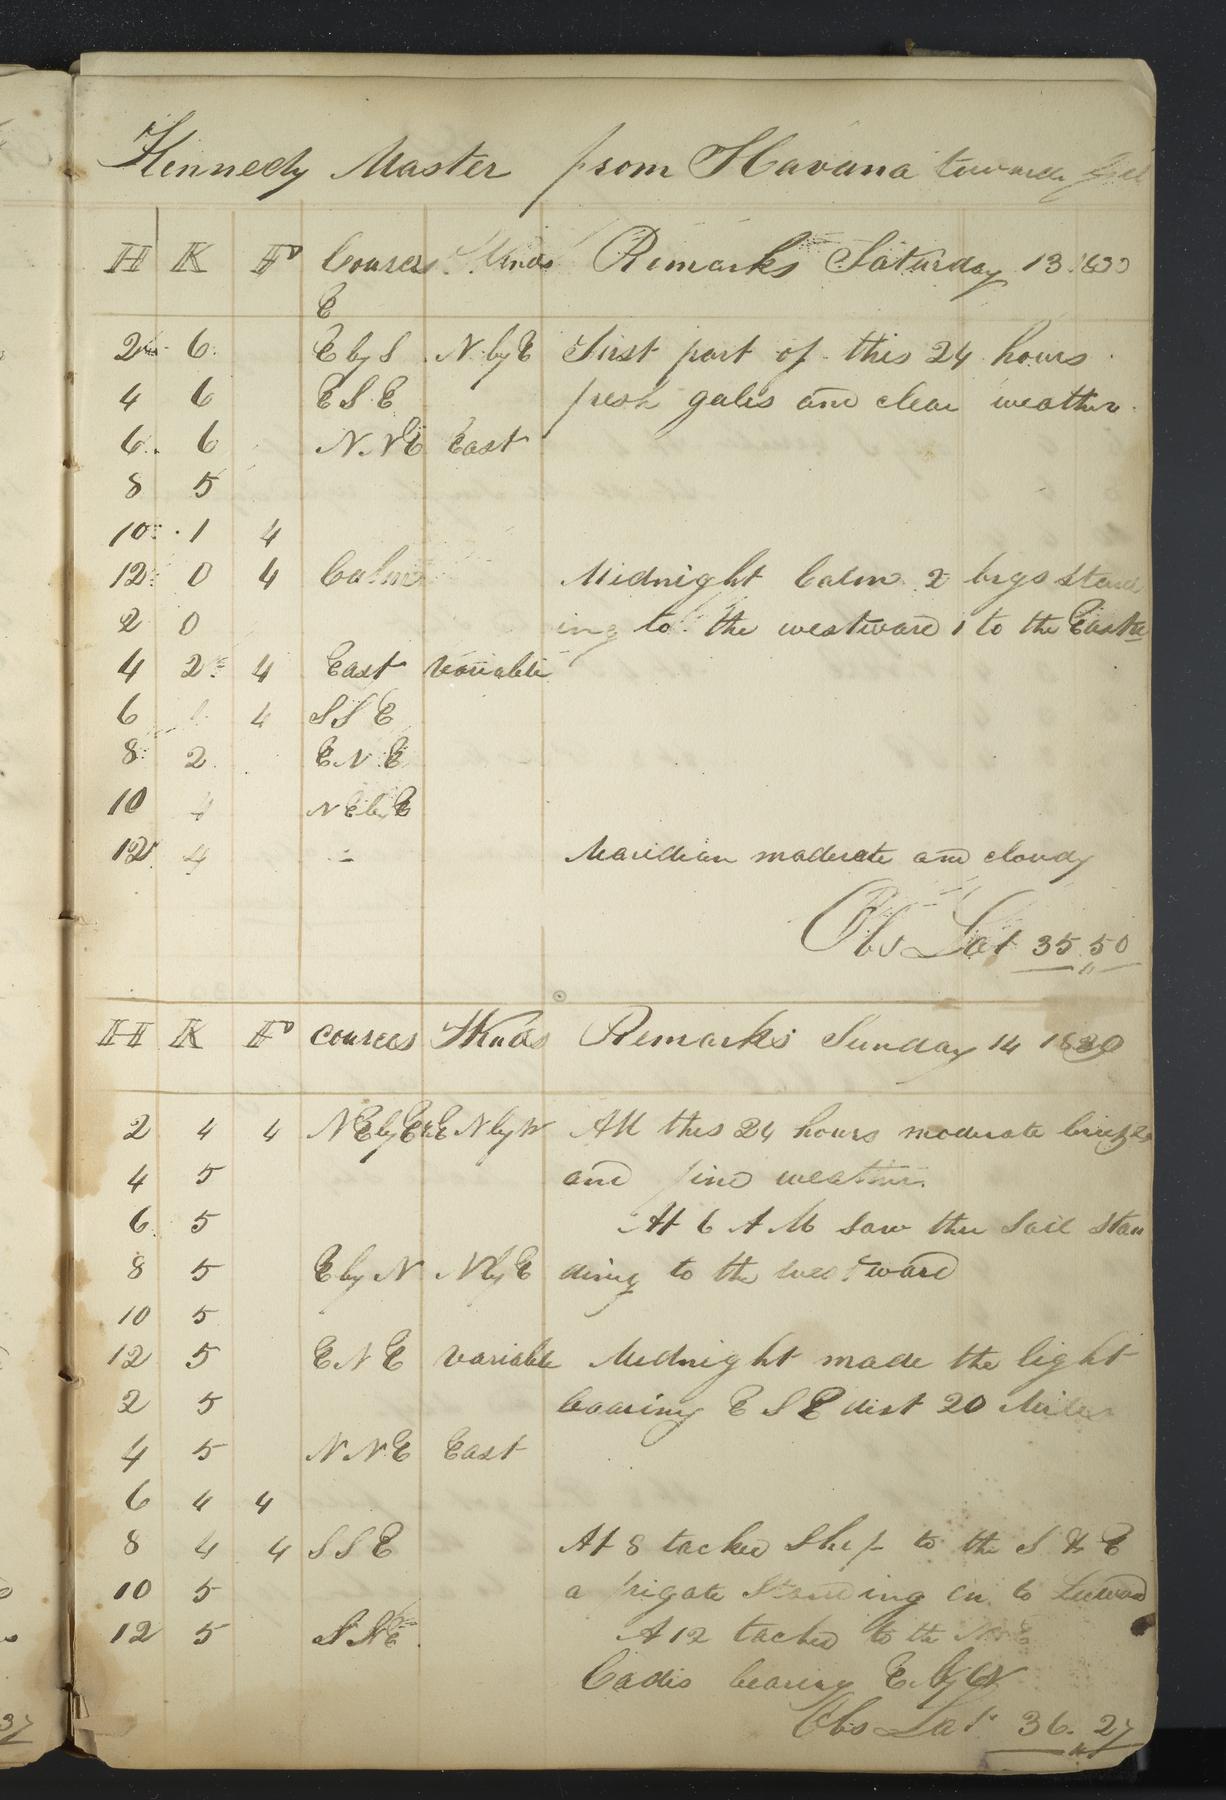 Kennedy Master from Havana towards
H K F Courses Winds Remarks Saturday 13 1830
E
2 6 E by S N by E First part of this 24 hours
4 6 E S E fresh gales and clear weather
6 6 N.N E East
8 5
10 1 4
12 0 4 Calm Midnight Calm 2 brgs stand
2 0 ing to the westward 1 to the Eastw
4 2 4 East Variable
6 4 S S E
8 2 E N E
10 4 N E by E
12 4 Meridian moderate and cloudy
Obs Lat 35,,50
H K F courses Winds Remarks Sunday 14 1830
2 4 4 N E by E N by W All this 24 hours moderate breezes
4 5 and fine weather.
6 5 At 6 A M saw thee Sail stan
8 5 E by N N by E ding to the westward
10 5
12 5 E N E variable Midnight made the light
2 5 bearing E S E dist 20 Miles
4 5 N N E East
6 4 4
8 4 4 S S E At 8 tacked Ship to the S & E
10 5 a frigate Standing on to Leeward
12 5 S S E A 12 tacked to the
Cadis bearing E. by N
Obs Lat 36,,27
37